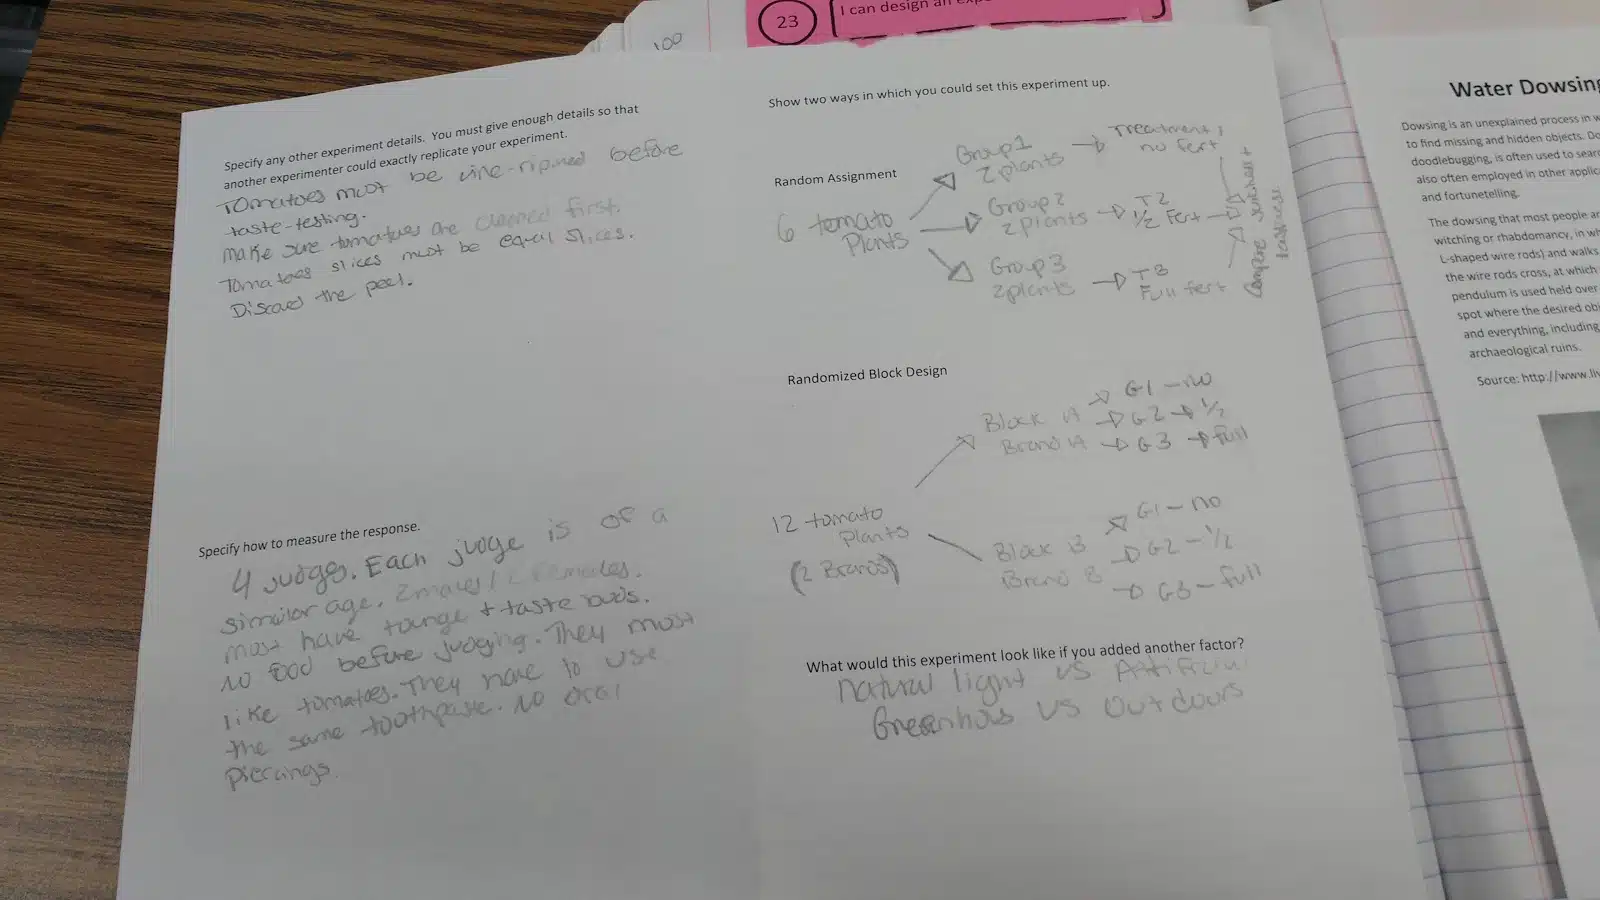 23
I can design an exp
100
Specify any other experiment details. You must give enough details so that
another experimenter could exactly replicate your experiment.
Tomatoes must be vine-ripined before
taste-testing.
make sure tomatoes are cleaned first.
Tomatoes slices must be equal slices.
Discard the peel.
Specify how to measure the response.
4 judges. Each judge is of a
similar age. 2 males / 2 females.
must have tounge + taste buds.
No food before judging. They must
like tomatoes. They have to use
the same toothpaste. No oral
piercings.
Show two ways in which you could set this experiment up.
Random Assignment
6 tomato
Plants
Group 1
2 plants
Treatment 1
no fert
Group 2
2 plants
T2
1/2 Fert
Group 3
2 plants
T3
Full fert
Compare +
Randomized Block Design
12 tomato
Plants
(2 Brands)
Block A
Brand A
G1 - no
G2 → 1/2
G3 → full
Block B
Brand B
G1 - no
G2 - 1/2
G3 - full
What would this experiment look like if you added another factor?
natural light vs Artificial
Greenhous vs Outdoors
Water Dowsing
Dowsing is an unexplained process in w
to find missing and hidden objects. Do
doodlebugging, is often used to sear
also often employed in other applic
and fortunetelling.
The dowsing that most people ar
witching or rhabdomancy, in wh
L-shaped wire rods) and walks
the wire rods cross, at which
pendulum is used held over
spot where the desired obj
and everything, including
archaeological ruins.
Source: http://www.liv